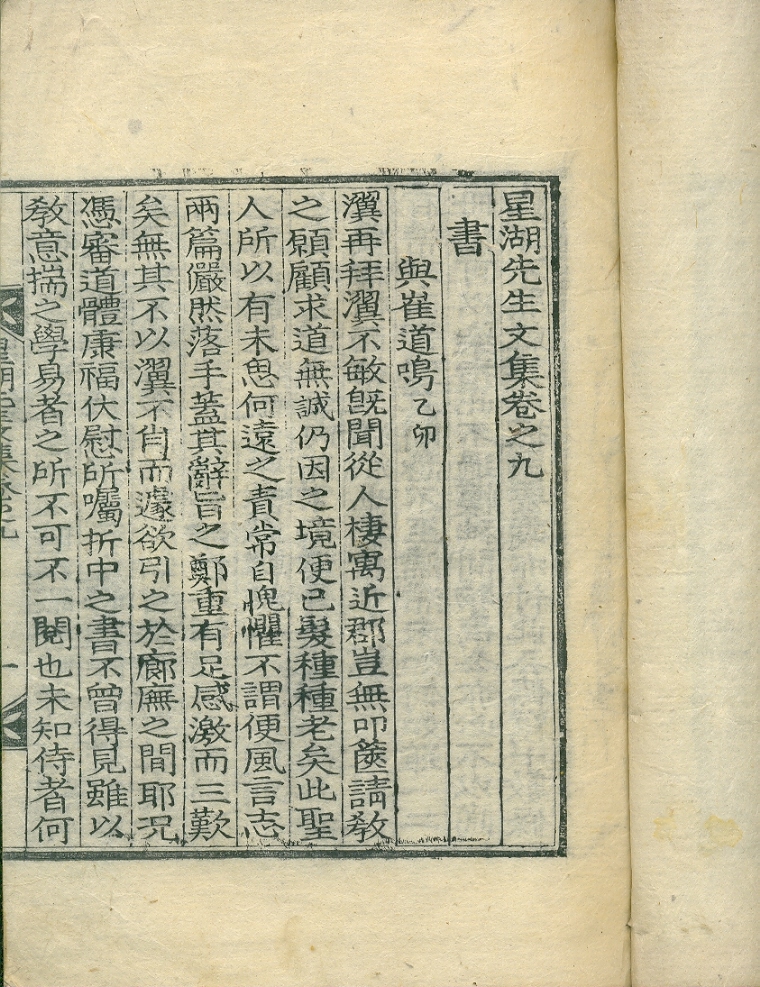 星湖先生文集卷之九
書
與崔道鳴 乙卯
瀷再拜瀷不敏旣聞從人棲寓近郡豈無叩篋請敎
之願顧求道無誠仍因之境便已髮種種老矣此聖
人所以有未思何遠之責常自愧懼不謂便風言志
兩篇儼然落手蓋其辭旨之鄭重有足感激而三歎
矣無其不以瀷不肖而遽欲引之於廊廡之間耶况
憑審道體康福伏慰所囑折中之書不曾得見雖以
敎意揣之學易者之所不可不一閱也未知侍者何
星湖先生文集卷之九
一